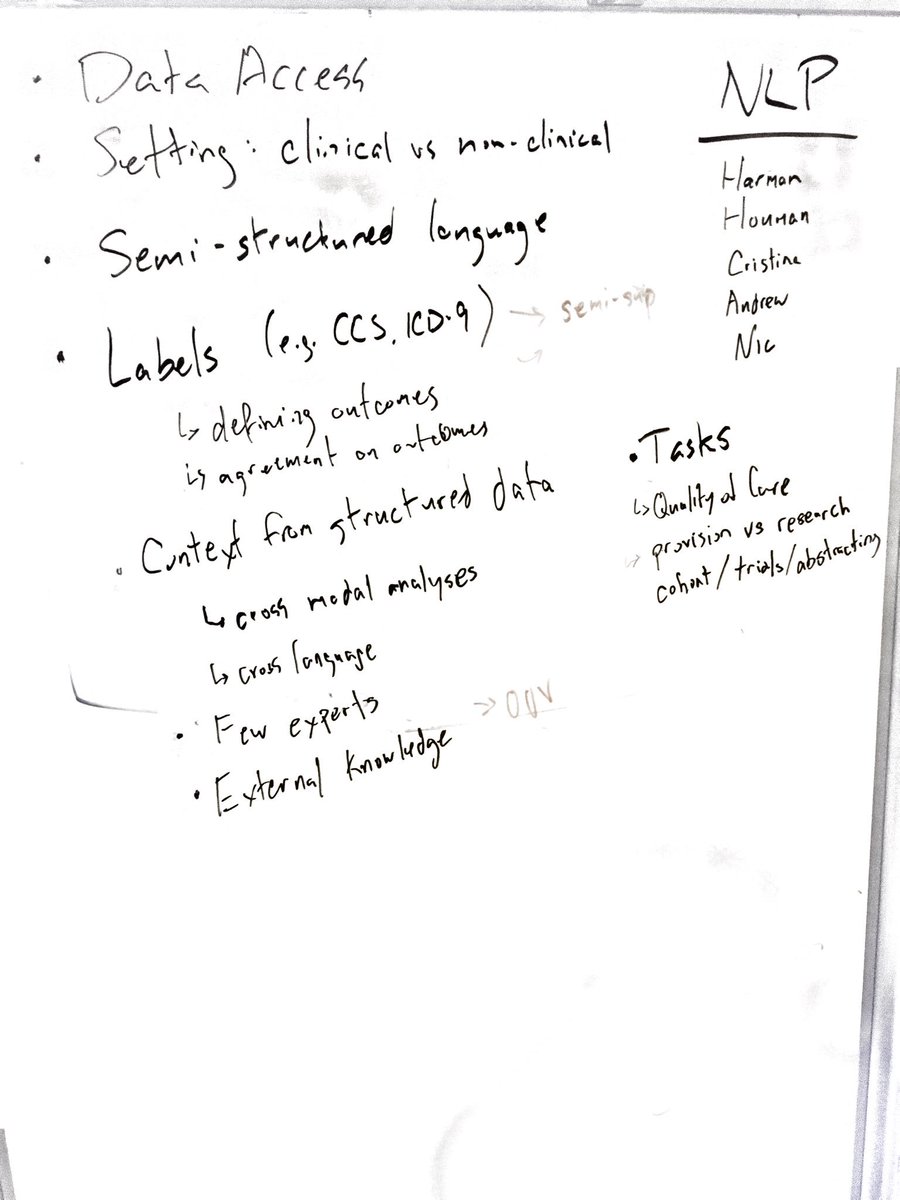 • Data Access
• Setting: clinical vs non-clinical
• Semi-structured language
• Labels (e.g. CCS, ICD-9) → semi-sup
↳ defining outcomes
↳ agreement on outcomes
• Context from structured data
↳ cross modal analyses
↳ cross language
• Few experts → OOV
• External knowledge
NLP
Harman
Houman
Cristina
Andrew
Nic
• Tasks
↳ Quality of Care
→ provision vs research
cohort/trials/abstracting